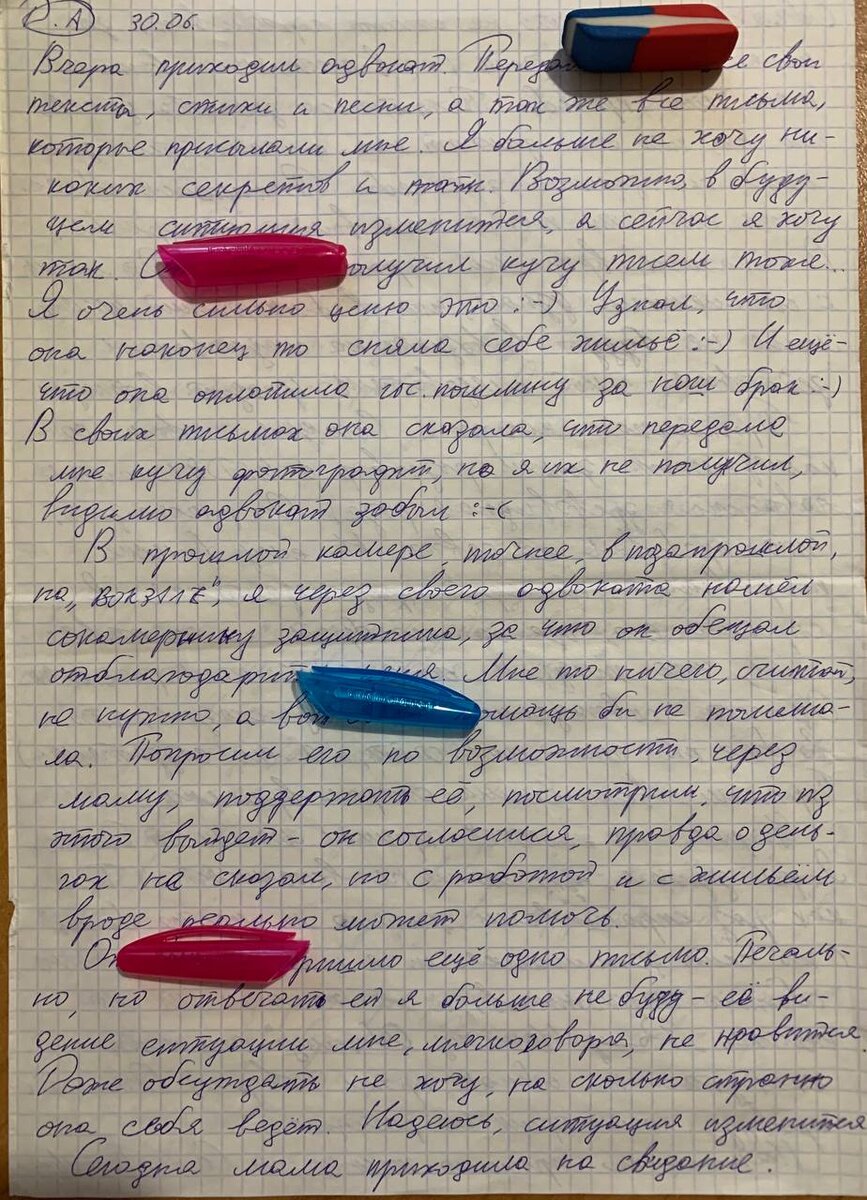 Р.А 30.06.
Вчера приходил адвокат. свои
тексты, стихи и песни, а так же все письма,
которые присылали мне. Я больше не хочу ни-
каких секретов и тайн. Возможно, в буду-
щем ситуация изменится, а сейчас я хочу
так. получил кучу писем тоже...
Я очень сильно ценю это :-) Узнал, что
она наконец то сняла себе жильё :-) И ещё-
что она оплатила гос. пошлину за наш брак :-)
В своих письмах она сказала, что передала
мне кучу фотографий, но я их не получил,
видимо адвокат забыл :-(
В прошлой камере, точнее, в позапрошлой,
на „ВОКЗАЛЕ", я через своего адвоката нашёл
сокамернику защитника, за что он обещал
Мне то ничего, считай,
не нужно, а бы не помеша-
ла. Попросил его по возможности, через
маму, поддержать её, посмотрим, что из
этого выйдет - он согласился, правда о день-
гах на сказал, но с работой и с жильём
вроде реально может помочь.
ещё одно письмо. Печаль-
но, но отвечать ей я больше не буду - её ви-
дение ситуации мне, мягко говоря, не нравится
Даже обсуждать не хочу, на сколько странно
она себя ведёт. Надеюсь, ситуация изменится
Сегодня мама приходила на свидание.